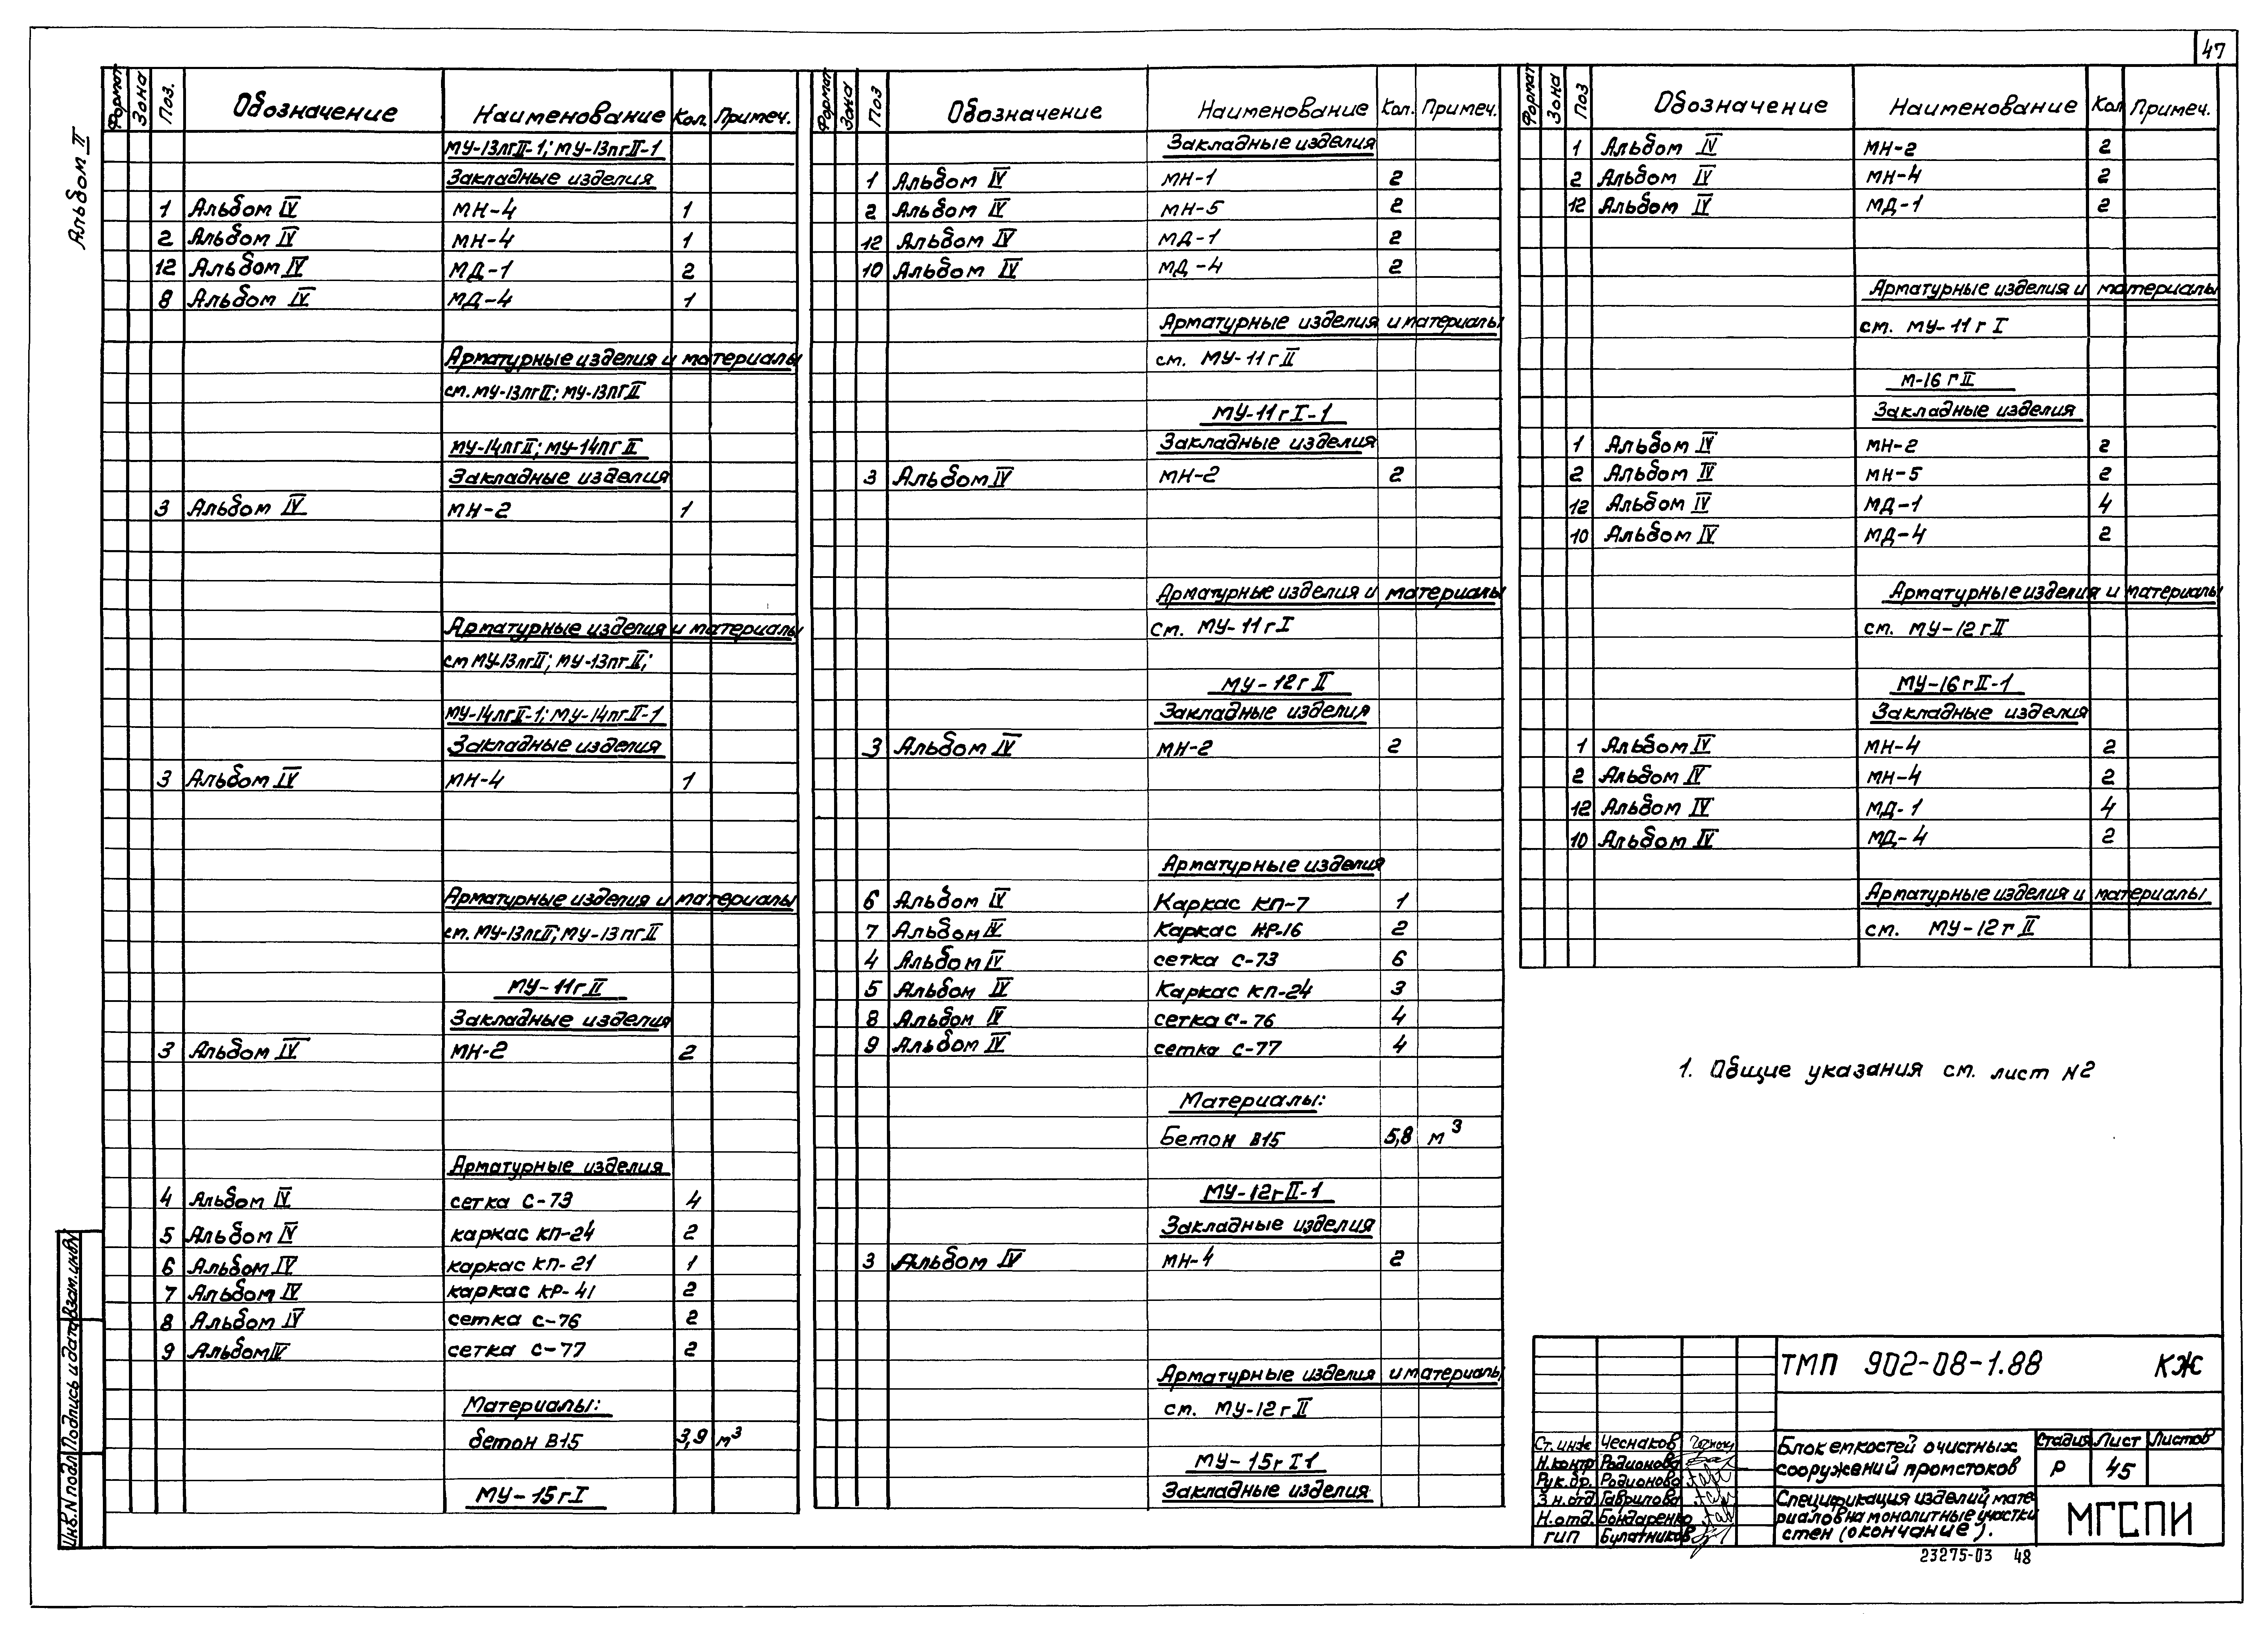 47
Альбом II
Формат Зона Поз. Обозначение Наименование Кол. Примеч.
МУ-13лгII-1; МУ-13пгII-1
Закладные изделия
1 Альбом IV МН-4 1
2 Альбом IV МН-4 1
12 Альбом IV МД-1 2
8 Альбом IV МД-4 1
Арматурные изделия и материалы
см. МУ-13лгII; МУ-13пгII
МУ-14лгII; МУ-14пгII
Закладные изделия
3 Альбом IV МН-2 1
Арматурные изделия и материалы
см МУ-13лгII; МУ-13пгII;
МУ-14лгII-1; МУ-14пгII-1
Закладные изделия
3 Альбом IV МН-4 1
Арматурные изделия и материалы
см. МУ-13лгII; МУ-13пгII
МУ-11гII
Закладные изделия
3 Альбом IV МН-2 2
Арматурные изделия
4 Альбом IV сетка С-73 4
5 Альбом IV каркас КП-24 2
6 Альбом IV каркас КП-21 1
7 Альбом IV каркас КР-41 2
8 Альбом IV сетка С-76 2
9 Альбом IV сетка С-77 2
Материалы:
бетон В15 3,9 м³
МУ-15гI
Формат Зона Поз Обозначение Наименование Кол. Примеч.
Закладные изделия
1 Альбом IV МН-1 2
2 Альбом IV МН-5 2
12 Альбом IV МД-1 2
10 Альбом IV МД-4 2
Арматурные изделия и материалы
см. МУ-11гII
МУ-11гI-1
Закладные изделия
3 Альбом IV МН-2 2
Арматурные изделия и материалы
см. МУ-11гI
МУ-12гII
Закладные изделия
3 Альбом IV МН-2 2
Арматурные изделия
6 Альбом IV Каркас КП-7 1
7 Альбом IV Каркас КР-16 2
4 Альбом IV сетка С-73 6
5 Альбом IV Каркас КП-24 3
8 Альбом IV сетка С-76 4
9 Альбом IV сетка С-77 4
Материалы:
Бетон В15 5,8 м³
МУ-12гII-1
Закладные изделия
3 Альбом IV МН-4 2
Арматурные изделия и материалы
см. МУ-12гII
МУ-15гI1
Закладные изделия
Формат Зона Поз Обозначение Наименование Кол Примеч.
1 Альбом IV МН-2 2
2 Альбом IV МН-4 2
12 Альбом IV МД-1 2
Арматурные изделия и материалы
см. МУ-11гI
М-16гII
Закладные изделия
1 Альбом IV МН-2 2
2 Альбом IV МН-5 2
12 Альбом IV МД-1 4
10 Альбом IV МД-4 2
Арматурные изделия и материалы
см. МУ-12гII
МУ-16гII-1
Закладные изделия
1 Альбом IV МН-4 2
2 Альбом IV МН-4 2
12 Альбом IV МД-1 4
10 Альбом IV МД-4 2
Арматурные изделия и материалы
см. МУ-12гII
1. Общие указания см. лист N2
ТМП 902-08-1.88 КЖ
Ст.инж Чеснаков
Н.контр Родионова
Рук.бр. Родионова
З н.отд Гаврилова
Н.отд. Бондаренко
ГИП Булатников
Блок емкостей очистных
сооружений промстоков
Стадия Лист Листов
Р 45
Спецификация изделий мате-
риалов на монолитные участки
стен (окончание).
МГСПИ
23275-03 48
Инв.N подл Подпись и дата Взам.инв.N